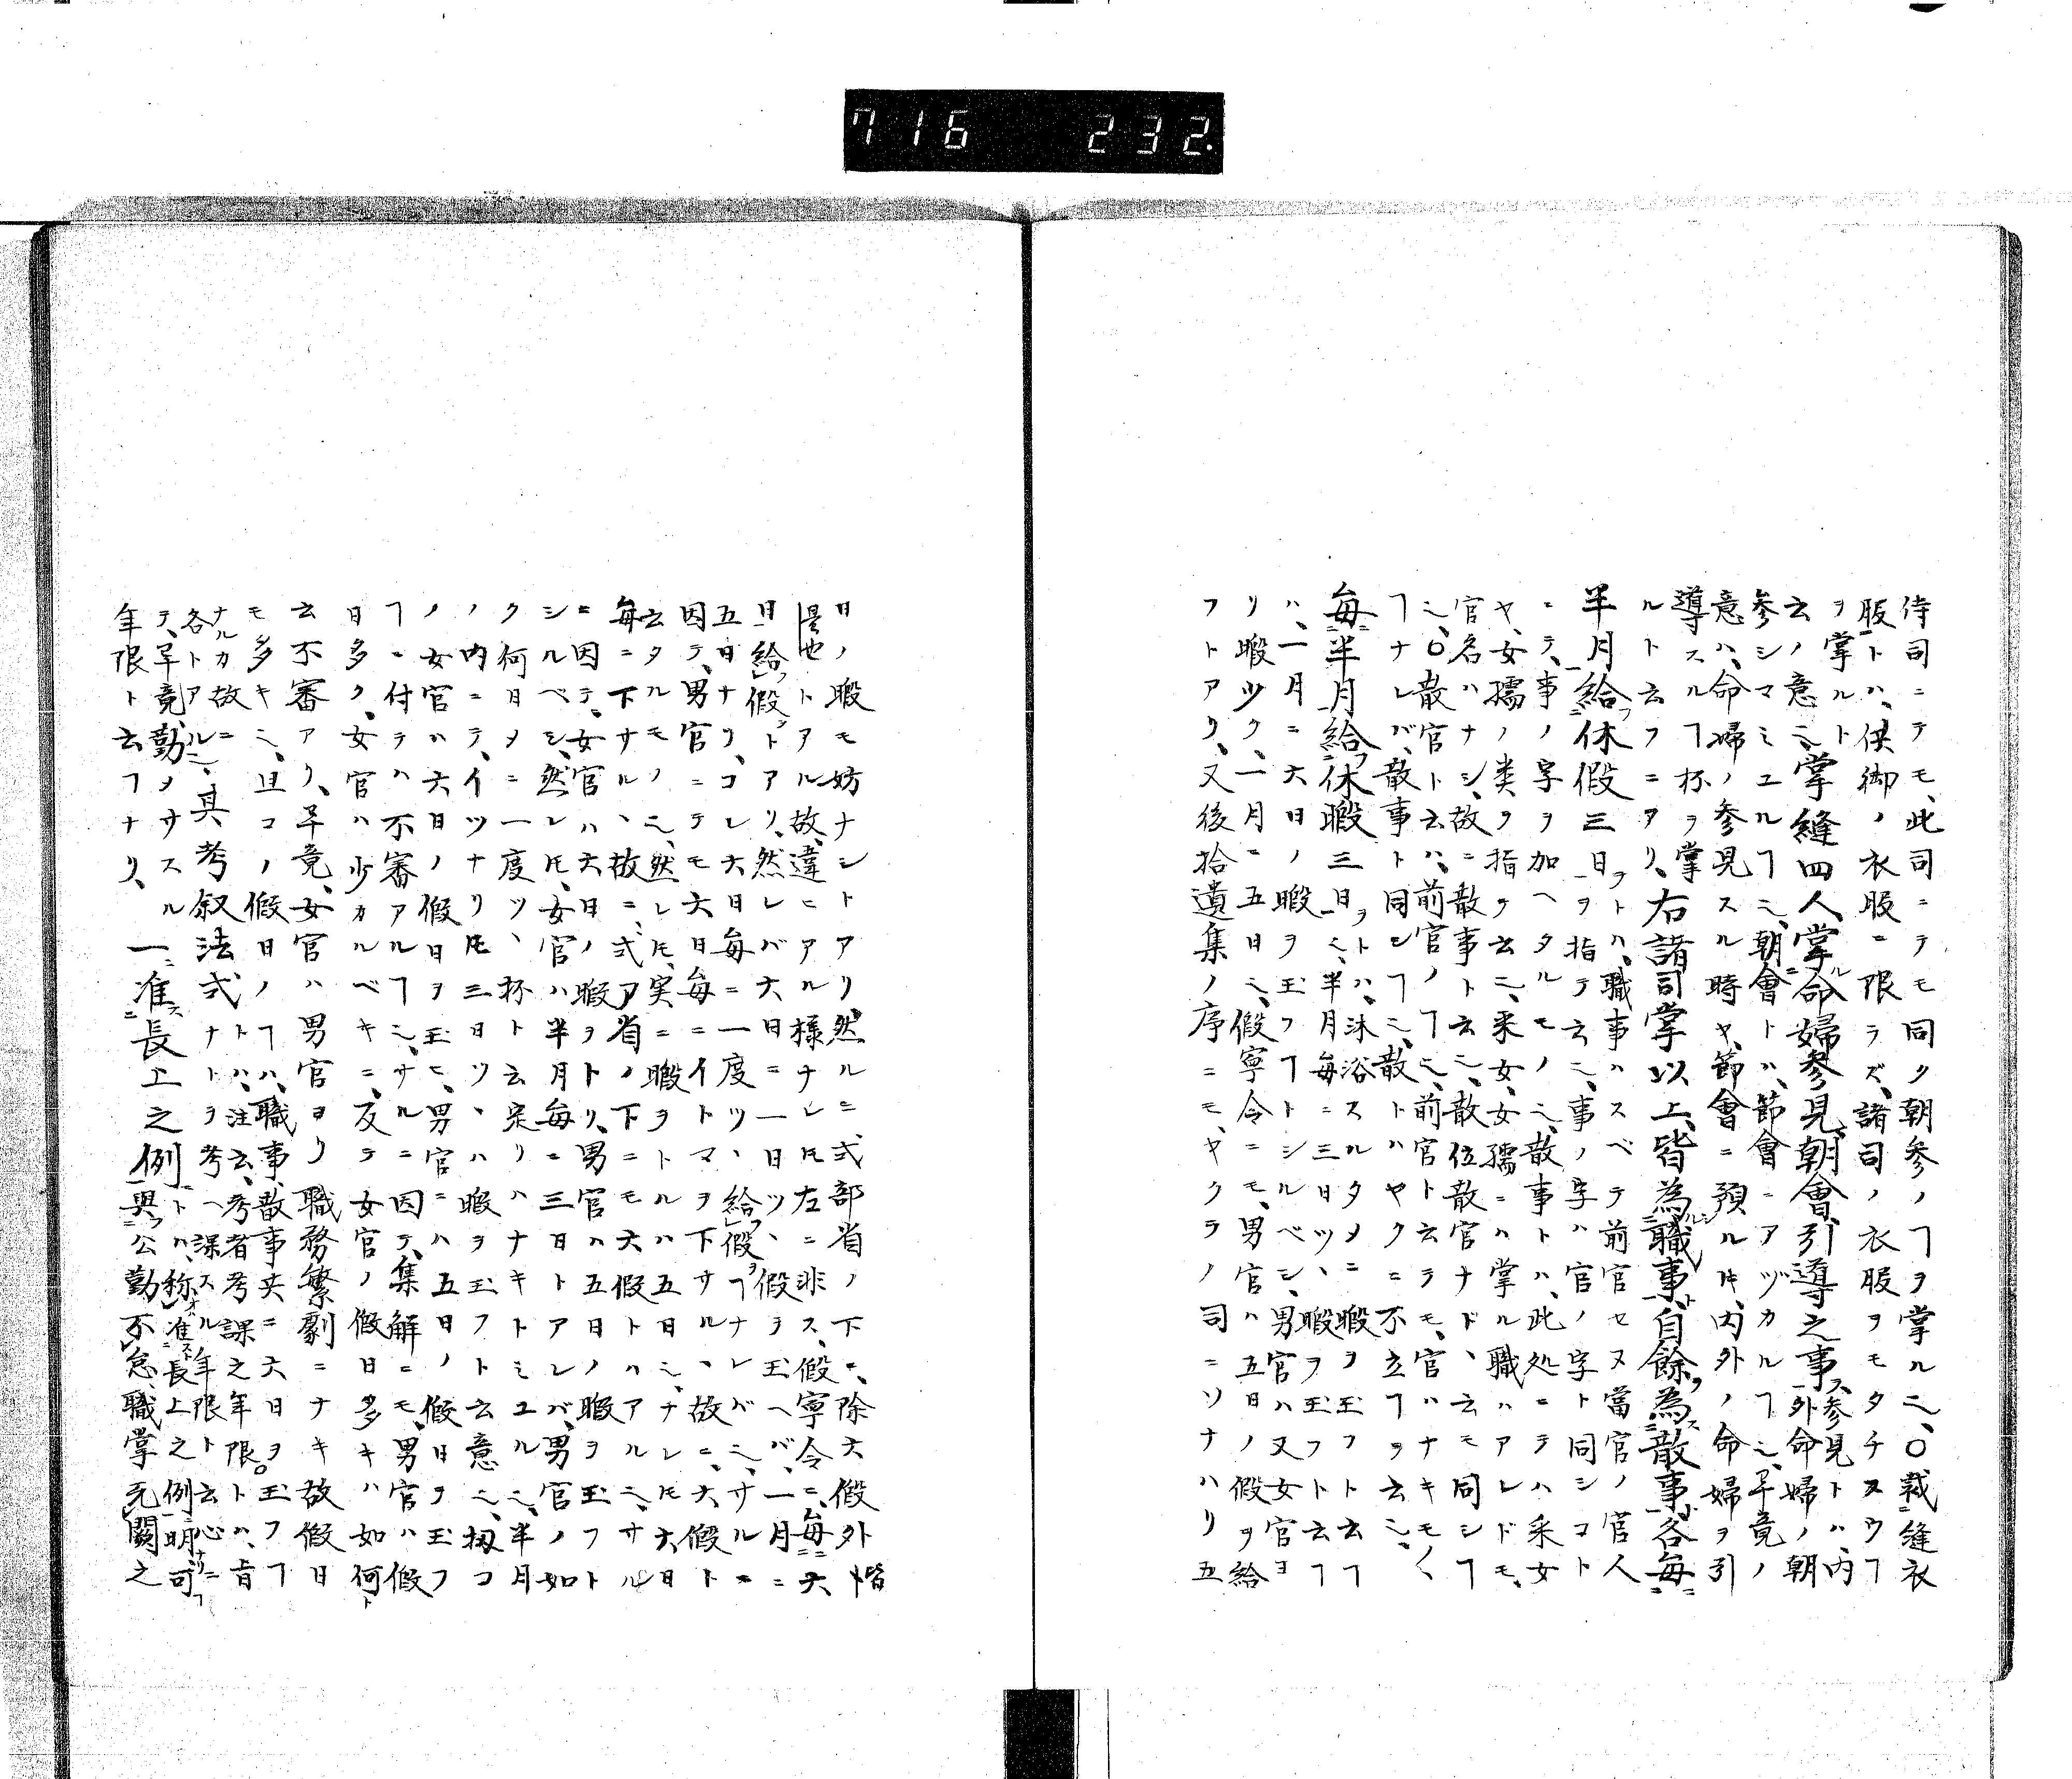 716 232.
侍司ニテモ、此司ニテモ同ク朝参ノヿヲ掌ル也、○裁縫衣
服トハ、供御ノ衣服ニ限ラズ、諸司ノ衣服ヲモタチヌウヿ
ヲ掌ルト云ノ意也、掌縫四人、掌命婦参見、朝會、引導之事、参見トハ、内
参シマミユルヿ也、朝會トハ、節會ニアヅカルヿ也、畢竟ノ
意ハ、命婦ノ参見スル時ヤ、節會ニ預ル時、内外ノ命婦ヲ引
導スルヿ杯ヲ掌
ルト云フニアリ、右諸司掌以上、皆為職事、自餘為散事、各毎
半月給休假三日、ヲトハ、職事ハスベテ前官セヌ當官ノ官人
ヲ指テ云也、事ノ字ハ官ノ字ト同シコト
ニテ、事ノ字ヲ加ヘタルモノ也、散事トハ、此処ニテハ采女
ヤ、女孺ノ類ヲ指テ云也、采女、女孺ニハ掌ル職ハアレドモ、
官名ハナシ、故ニ散事ト云也、散位散官ナド、云モ同シヿ
也、○散官ト云ハ、前官ノヿ也、前官ト云ラモ、官ハナキモノ
ヿナレバ、散事ト同シヿ也、散トハヤクニ不立ヿヲ云也、
毎半月給休暇三日、ヲトハ、沐浴スルタメニ暇ヲ玉フト云ヿ
也、半月毎ニ三日ツヽ暇ヲ玉フト云フヿ
ハ、一月ニ六日ノ暇ヲ玉フヿトシルベシ、男官ハ又女官ヨ
リ暇少ク、一月ニ五日也、假寧令ニモ、男官ハ五日ノ假ヲ給
フトアリ、又後拾遺集ノ序ニモ、ヤクラノ司ニソナハリ五
日ノ暇モ妨ナシトアリ、然ルニ、式部省ノ下ニ、除六假外皆
是也トアル故、違ニアル様ナレ𪜈左ニ非ス、假寧令ニ、毎六
日給假トアリ、然レバ六日ニ一日ツヽ假ヲ玉ヘバ、一月ニ
五日ナリ、コレ六日毎ニ一度ツヽ給假ヿナレバ也、サルニ
因テ、男官ニテモ六日毎ニイトマヲ下サルヽ故ニ、六假ト
云タルモノ也、然レ𪜈、実ニ暇ヲトルハ五日也、ナレ𪜈六日
毎ニ下サルヽ故ニ、式ア省ノ下ニモ六假トハアル也、サル
ニ因テ、女官ハ六日ノ暇ヲトリ、男官ハ五日ノ暇ヲ玉フト
シルベシ、然レ𪜈、女官ハ半月毎ニ三日トアレバ、男官ノ如
ク何日メニ一度ツヽ杯ト云定リハナキトミユル也、半月
ノ内ニテ、イツナリ𪜈三日ツヽハ暇ヲ玉フト云意也、扨コ
ノ女官ハ六日ノ假日ヲ玉ヒ、男官ニハ五日ノ假日ヲ玉フ
ヿニ付テハ不審アルヿ也、サルニ因テ、集解ニモ、男官ハ假
日多ク、女官ハ少カルベキニ、反テ女官ノ假日多キハ如何ト
云不審アリ、畢竟、女官ハ男官ヨリ職務繁劇ニナキ故假日
モ多キ也、且コノ假日ノヿハ、職事、散事共ニ六日ヲ玉フヿ
ナルカ故ニ
各トアル也、其考叙法式、トハ、注云、考者考課之年限。トハ、肯
ナトヲ考ヘ課スル年限ト云心ニ
テ、畢竟、勤ヲサスル
一准長上之例、トハ、称准長上之例、明可
年限ト云ヿナリ、
與公勤不怠、職掌无闕之